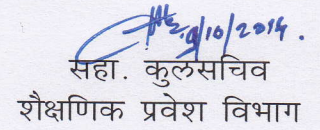 9/10/2014.
सहा. कुलसचिव
शैक्षणिक प्रवेश विभाग